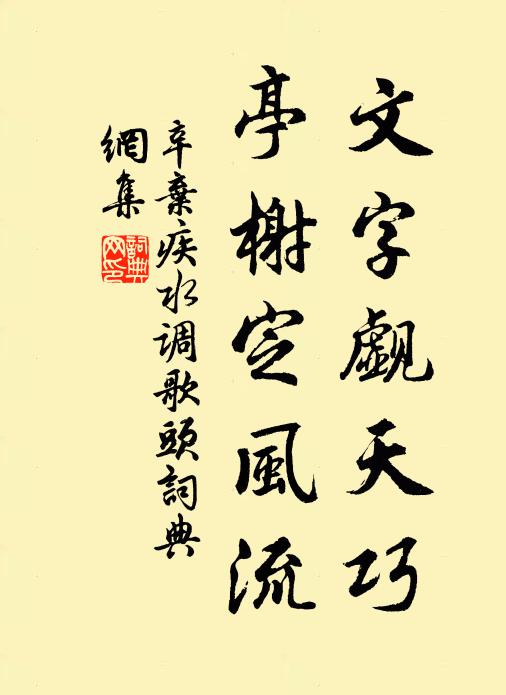 文字觑天巧
亭榭定風流
辛棄疾水调歌頭詞典
網集
詞典
网印